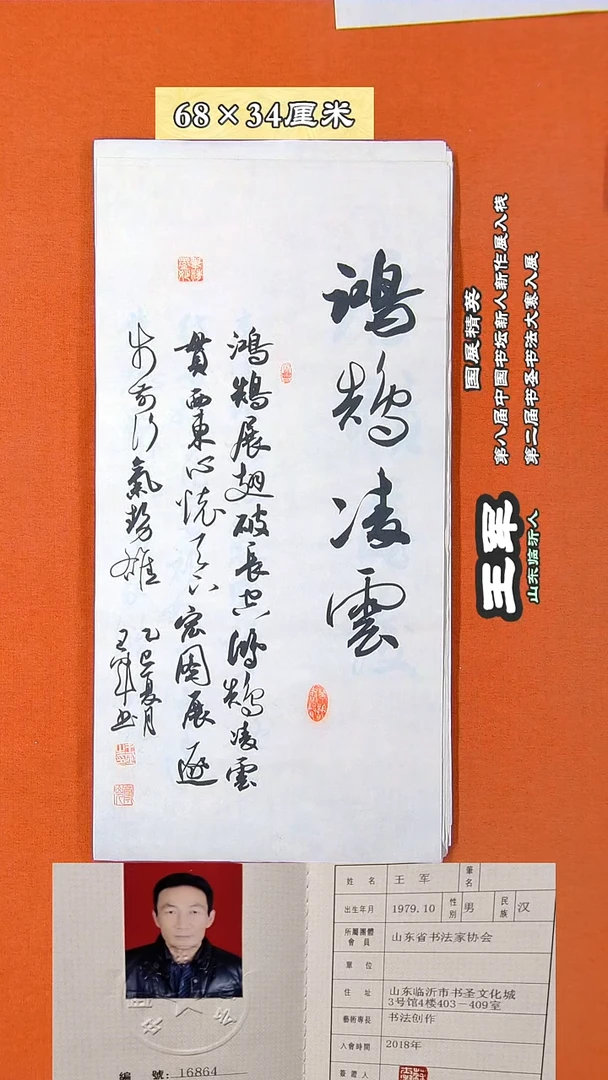 68×34厘米
鸿鹄凌雲
鸿鹄展翅破長空鸿鹄凌雲
貫西東心懷天下宏圖展逐
步前行氣勢雄
乙巳夏月
王軍书
国展精英
第八届中国书坛新人新作展入展
第二届书圣书法大赛入展
王军
山东临沂人
姓名 王军 筆名
出生年月 1979.10 性别 男 民族 汉
所屬團體會員 山东省书法家协会
單位
住址 山东临沂市书圣文化城
3号馆4楼403－409室
藝術專長 书法创作
入會時間 2018年
簽證人
編號：16864